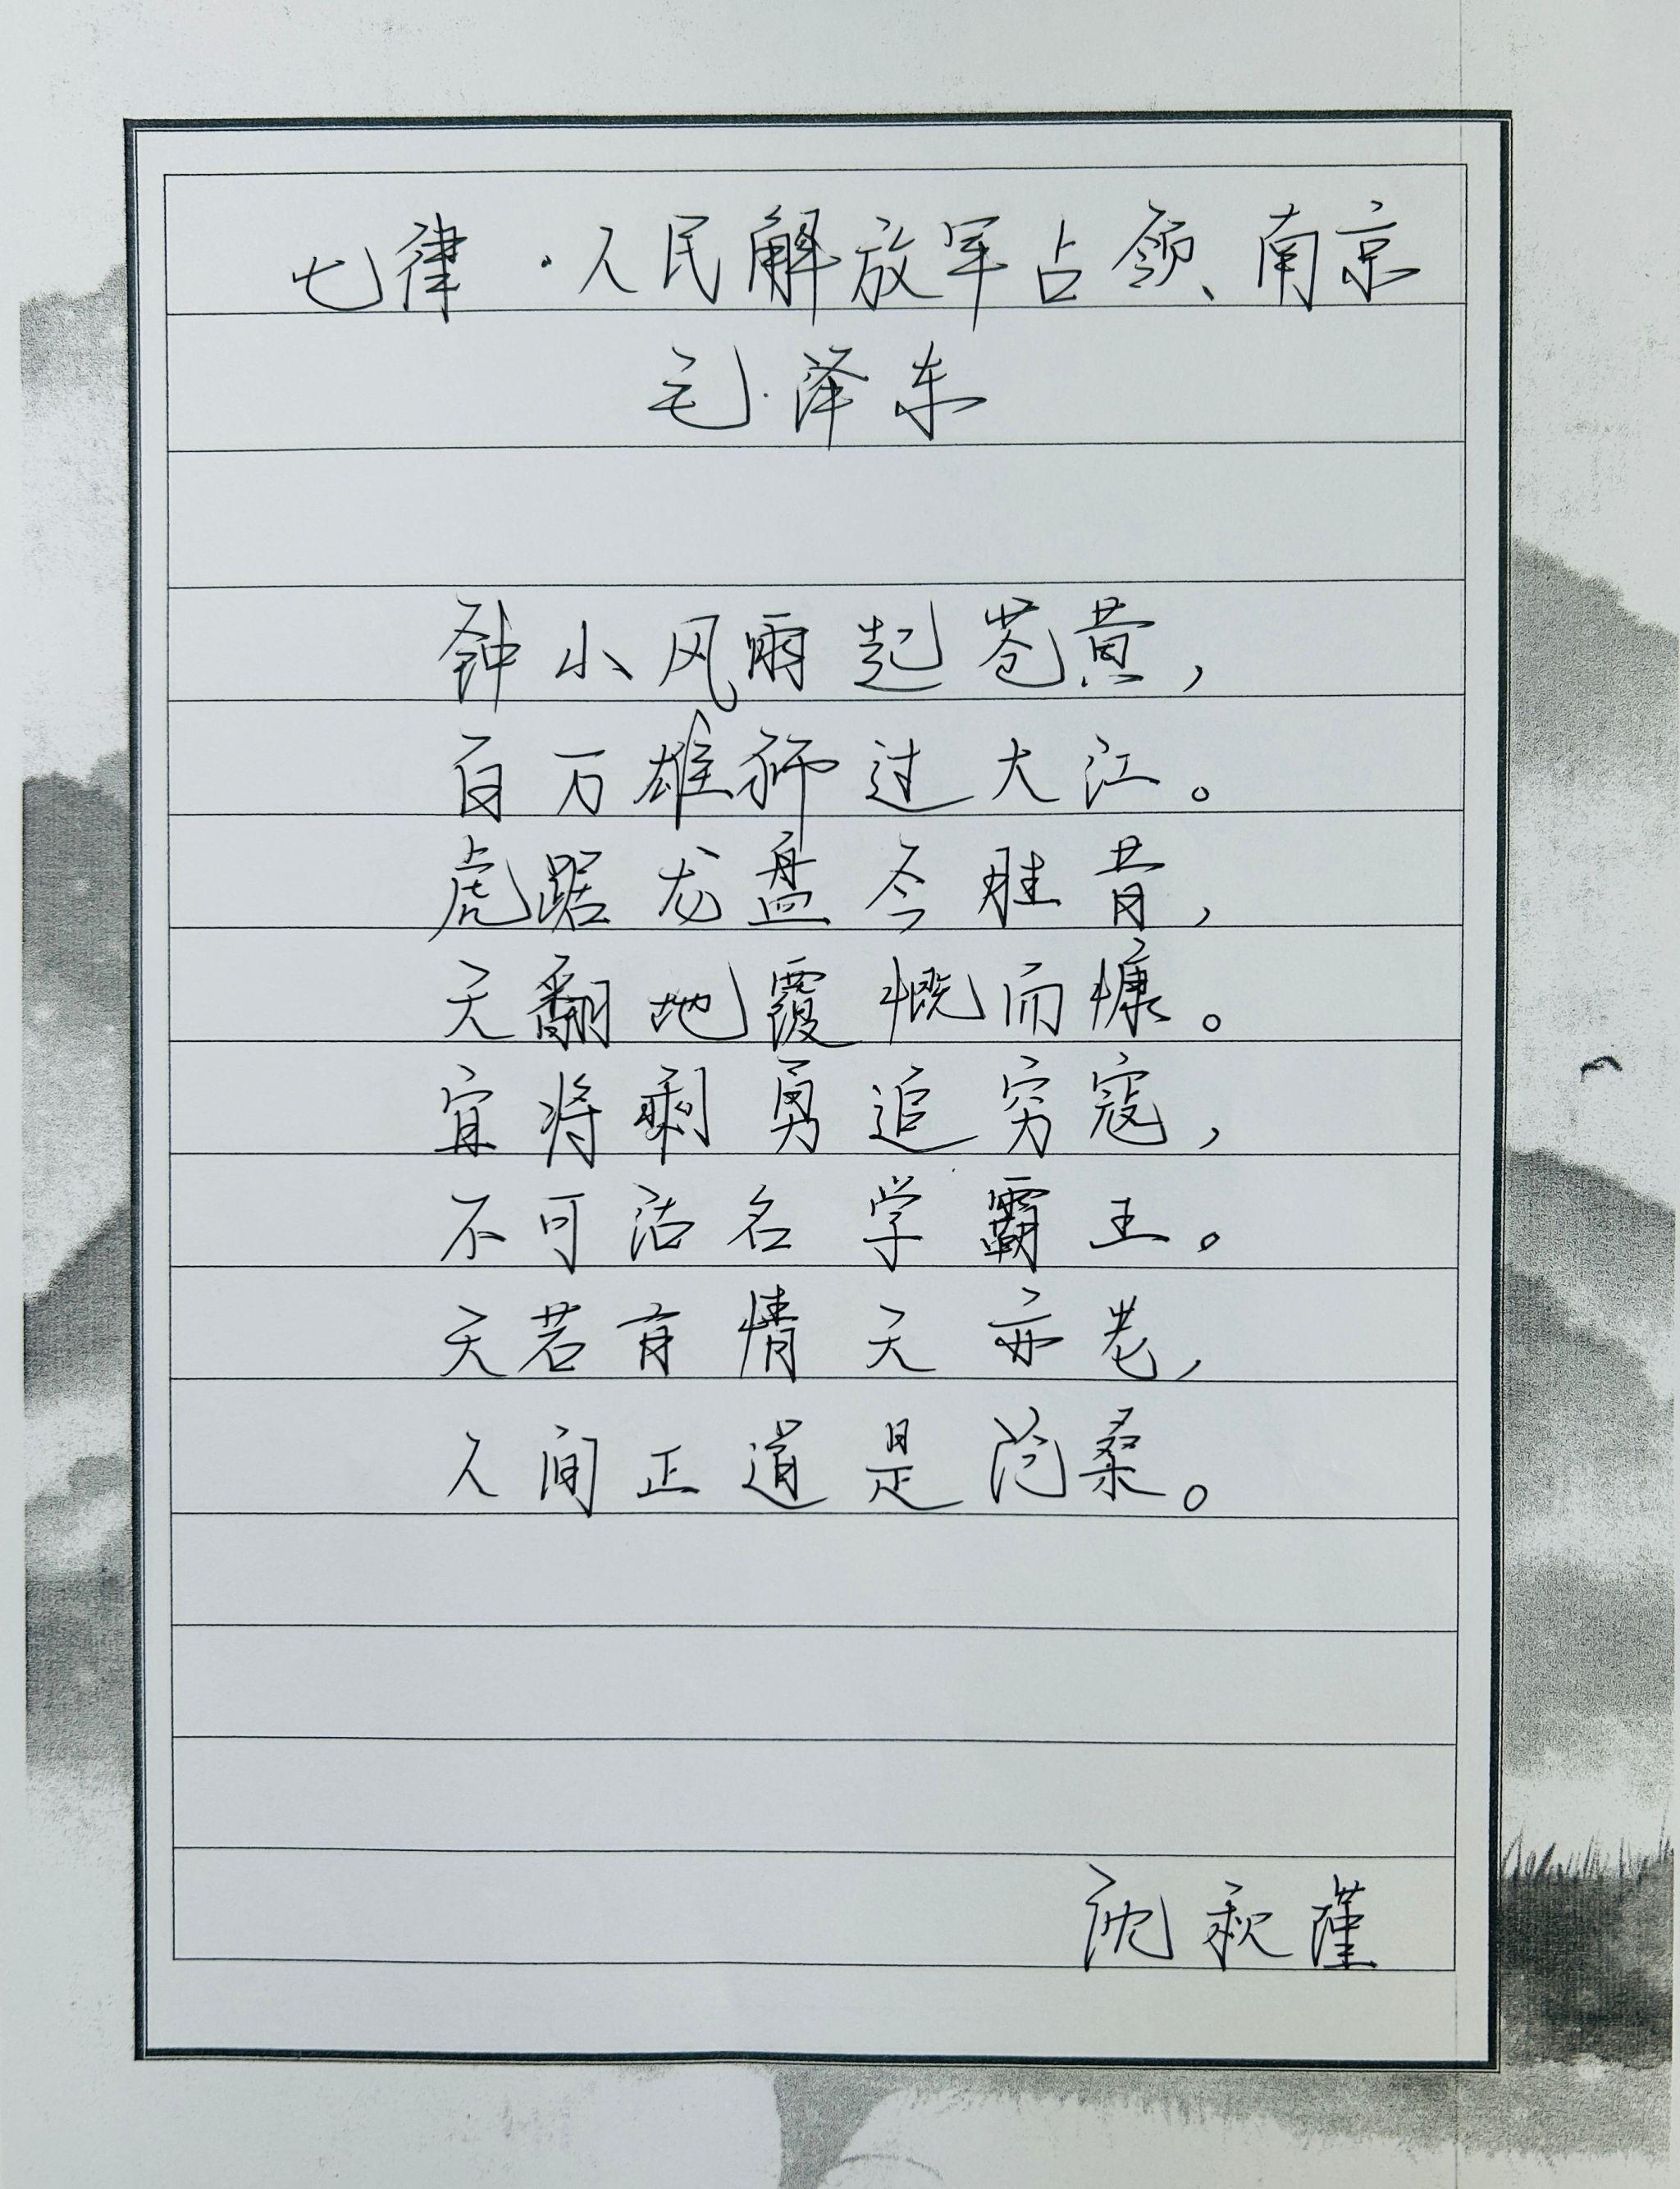 七律·人民解放军占领南京
毛泽东
钟山风雨起苍黄，
百万雄狮过大江。
虎踞龙盘今胜昔，
天翻地覆慨而慷。
宜将剩勇追穷寇，
不可沽名学霸王。
天若有情天亦老，
人间正道是沧桑。
沈秋瑾